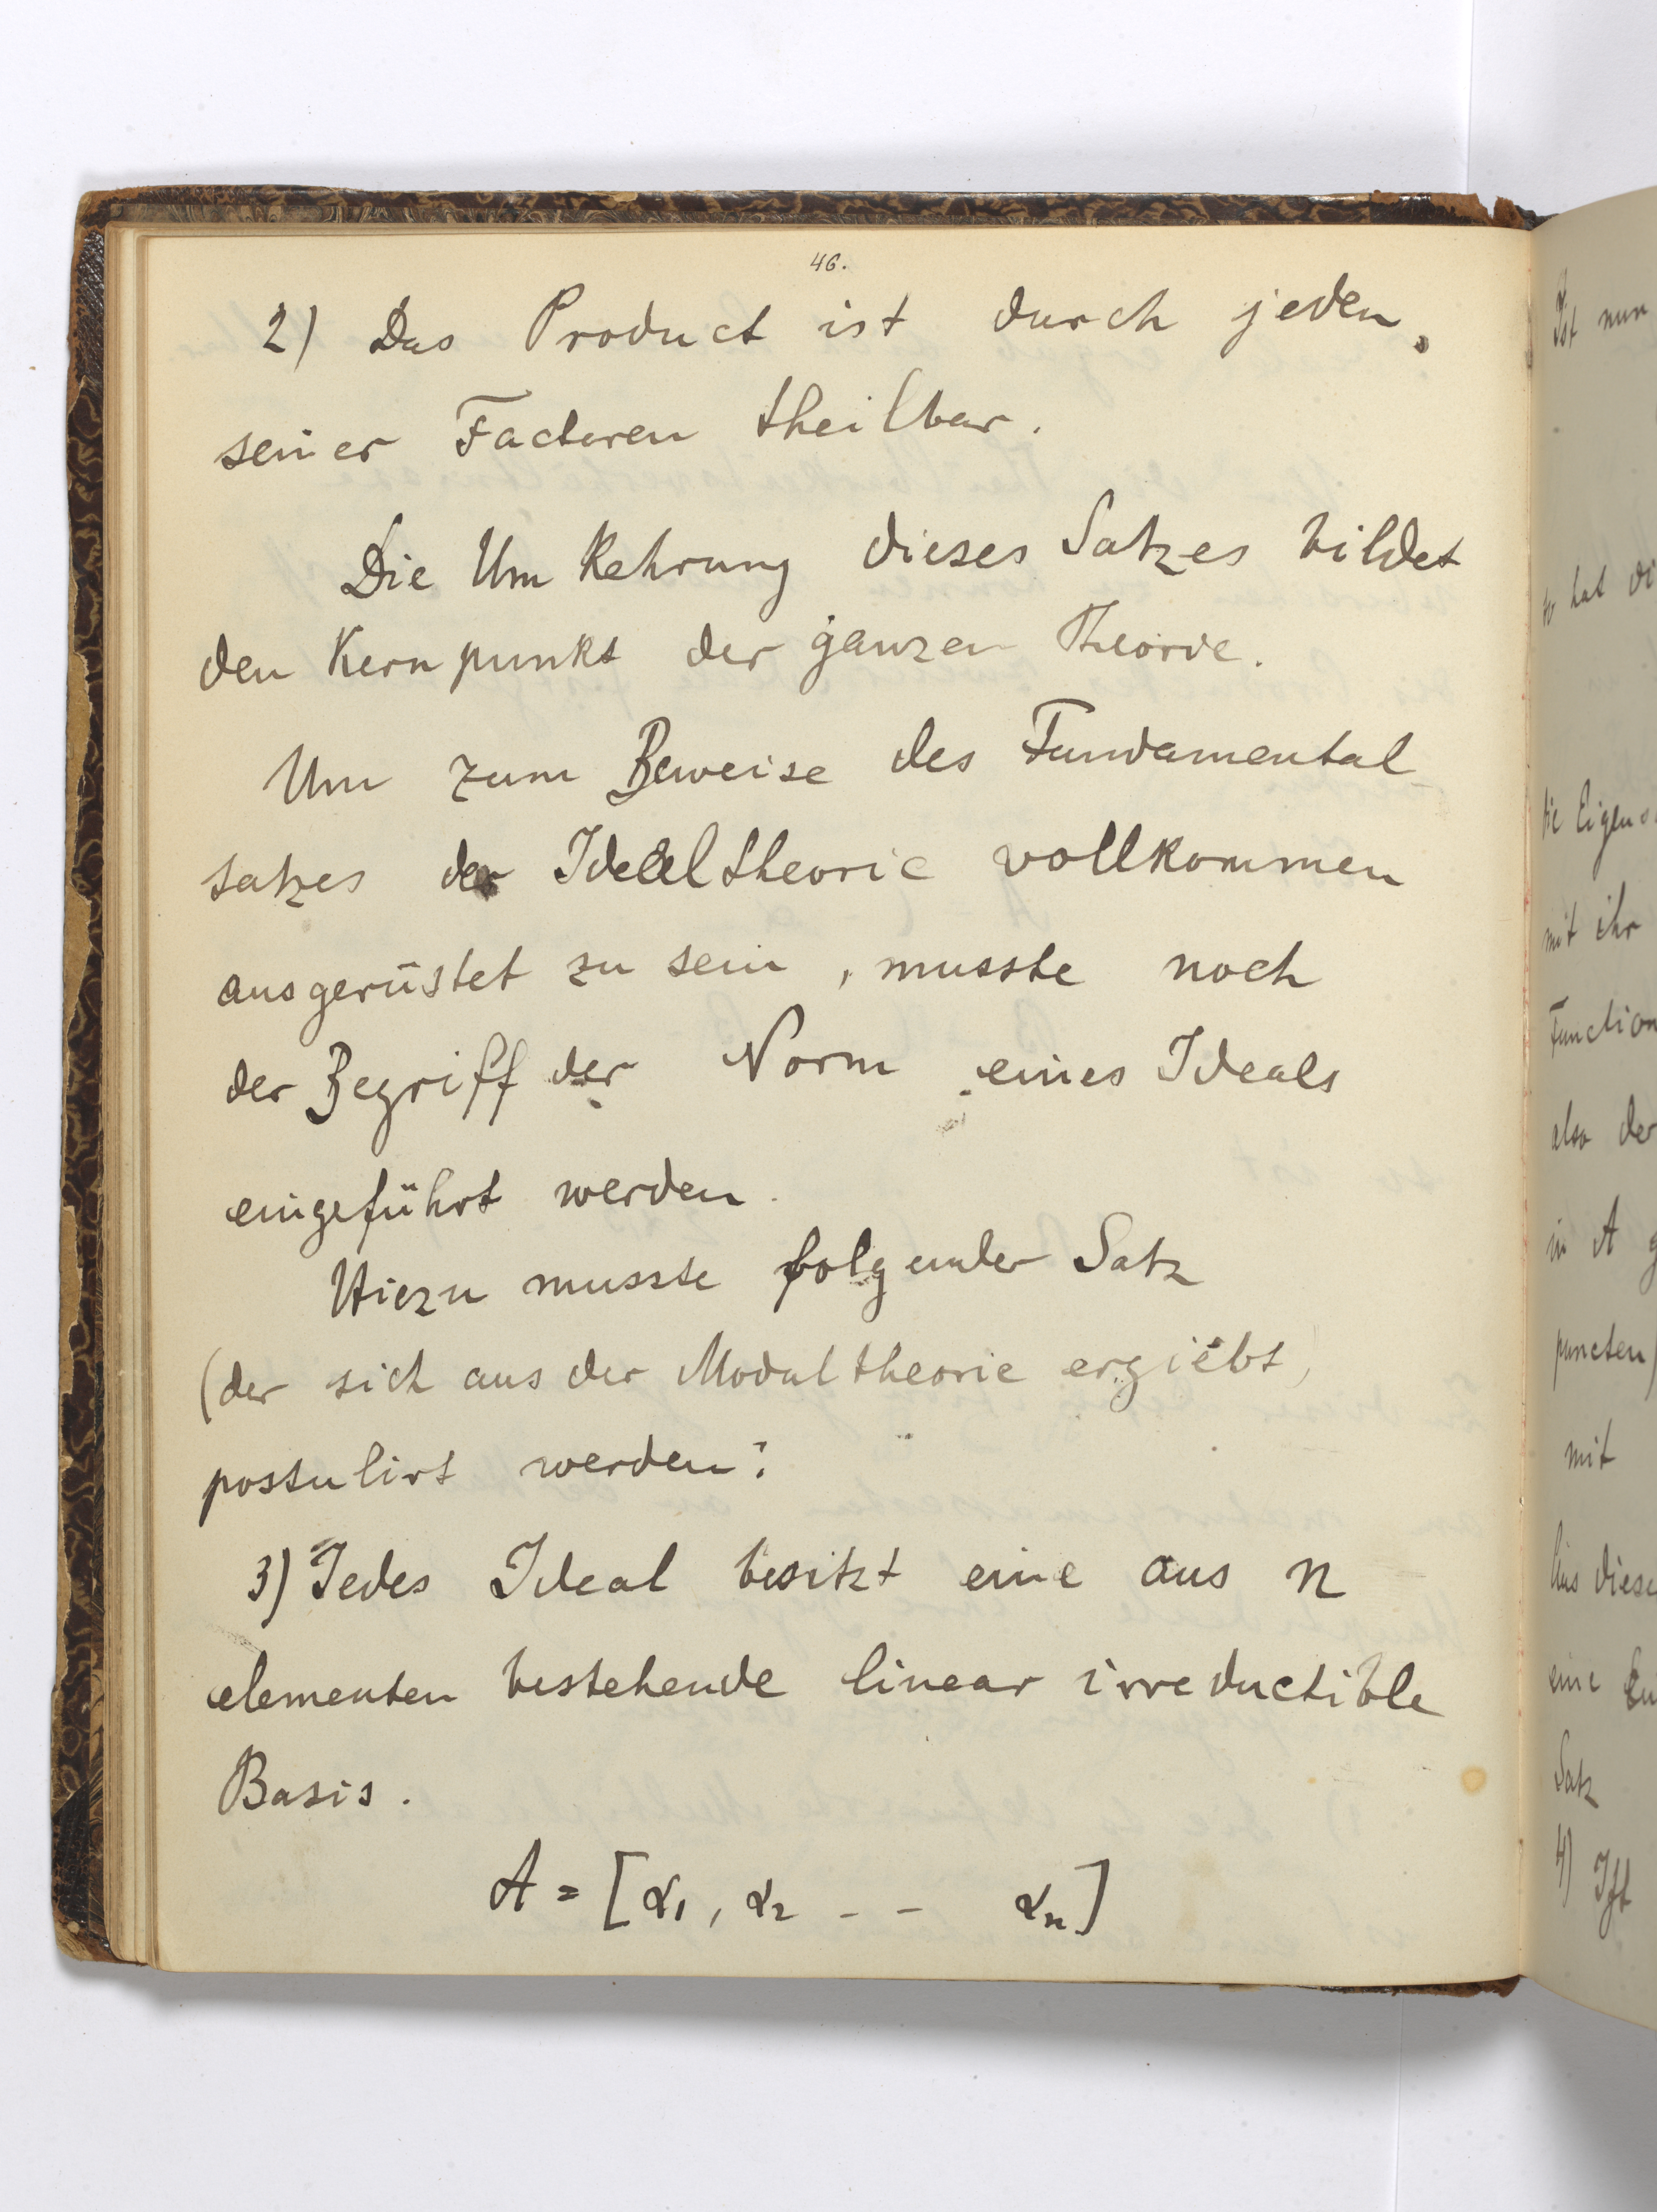 46.
2) Das Product ist durch jeden
seiner Factoren theilbar.
Die Umkehrung dieses Satzes bildet
den Kernpunkt der ganzen Theorie.
Um zum Beweise des Fundamental-
satzes der Idealtheorie vollkommen
ausgerüstet zu sein, musste noch
der Begriff der Norm eines Ideals
eingeführt werden.
Hiezu musste folgender Satz
(der sich aus der Modultheorie ergiebt)
postulirt werden:
3) Jedes Ideal besitzt eine aus n
elementen bestehende linear irreductible
Basis.
A = [α1, α2 - - αn]
Ist nun
hat di
die Eigens
mit ihr
Function
also der
in A g
puncten)
mit
Aus diese
eine
Satz
4) Ist